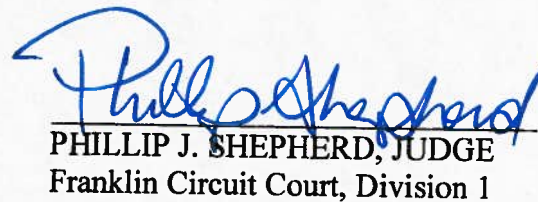 Phillip Shepherd
PHILLIP J. SHEPHERD, JUDGE
Franklin Circuit Court, Division 1